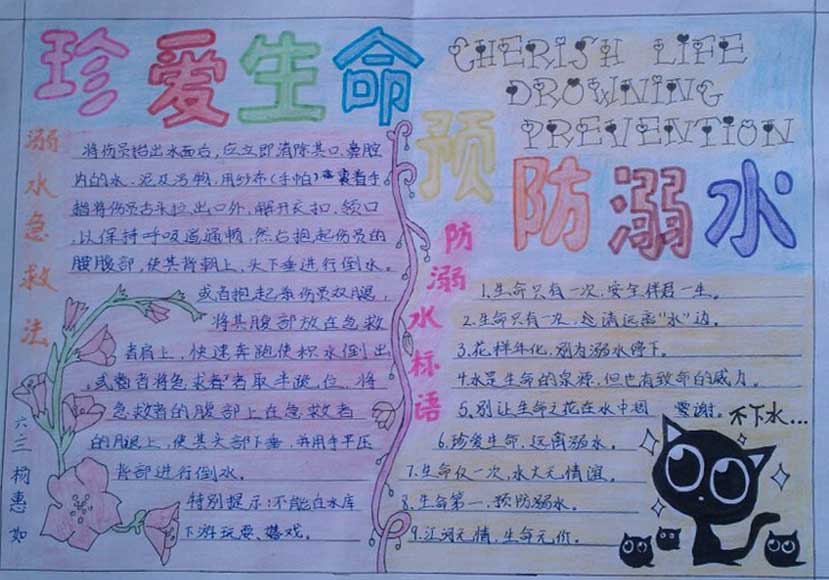 珍爱生命
CHERISH LIFE
DROWNING
PREVENTION
预防溺水
溺水急救法
将伤员抬出水面后,应立即清除其口、鼻腔
内的水、泥及污物,用纱布(手帕)裹着手
指将伤员舌头拉出口外,解开衣扣、领口
,以保持呼吸道通畅,然后抱起伤员的
腰腹部,使其背朝上、头下垂进行倒水。
或者抱起伤员双腿,
将其腹部放在急救
者肩上,快速奔跑使积水倒出
,或者将急求者者取半跪位,将
急救者的腹部上在急救者
的腿上,使其头部下垂,并用手平压
背部进行倒水。
特别提示:不能在水库
下游玩耍、嬉戏。
六三 杨惠如
防溺水标语
1.生命只有一次,安全伴君一生。
2.生命只有一次,请远离“水”边。
3.花样年化,别为溺水停下。
4.水是生命的泉源,但也有致命的威力。
5.别让生命之花在水中凋零谢。
6.珍爱生命,远离溺水。
7.生命仅一次,水火无情谊。
8.生命第一,预防溺水。
9.江河无情,生命无价。
不下水...